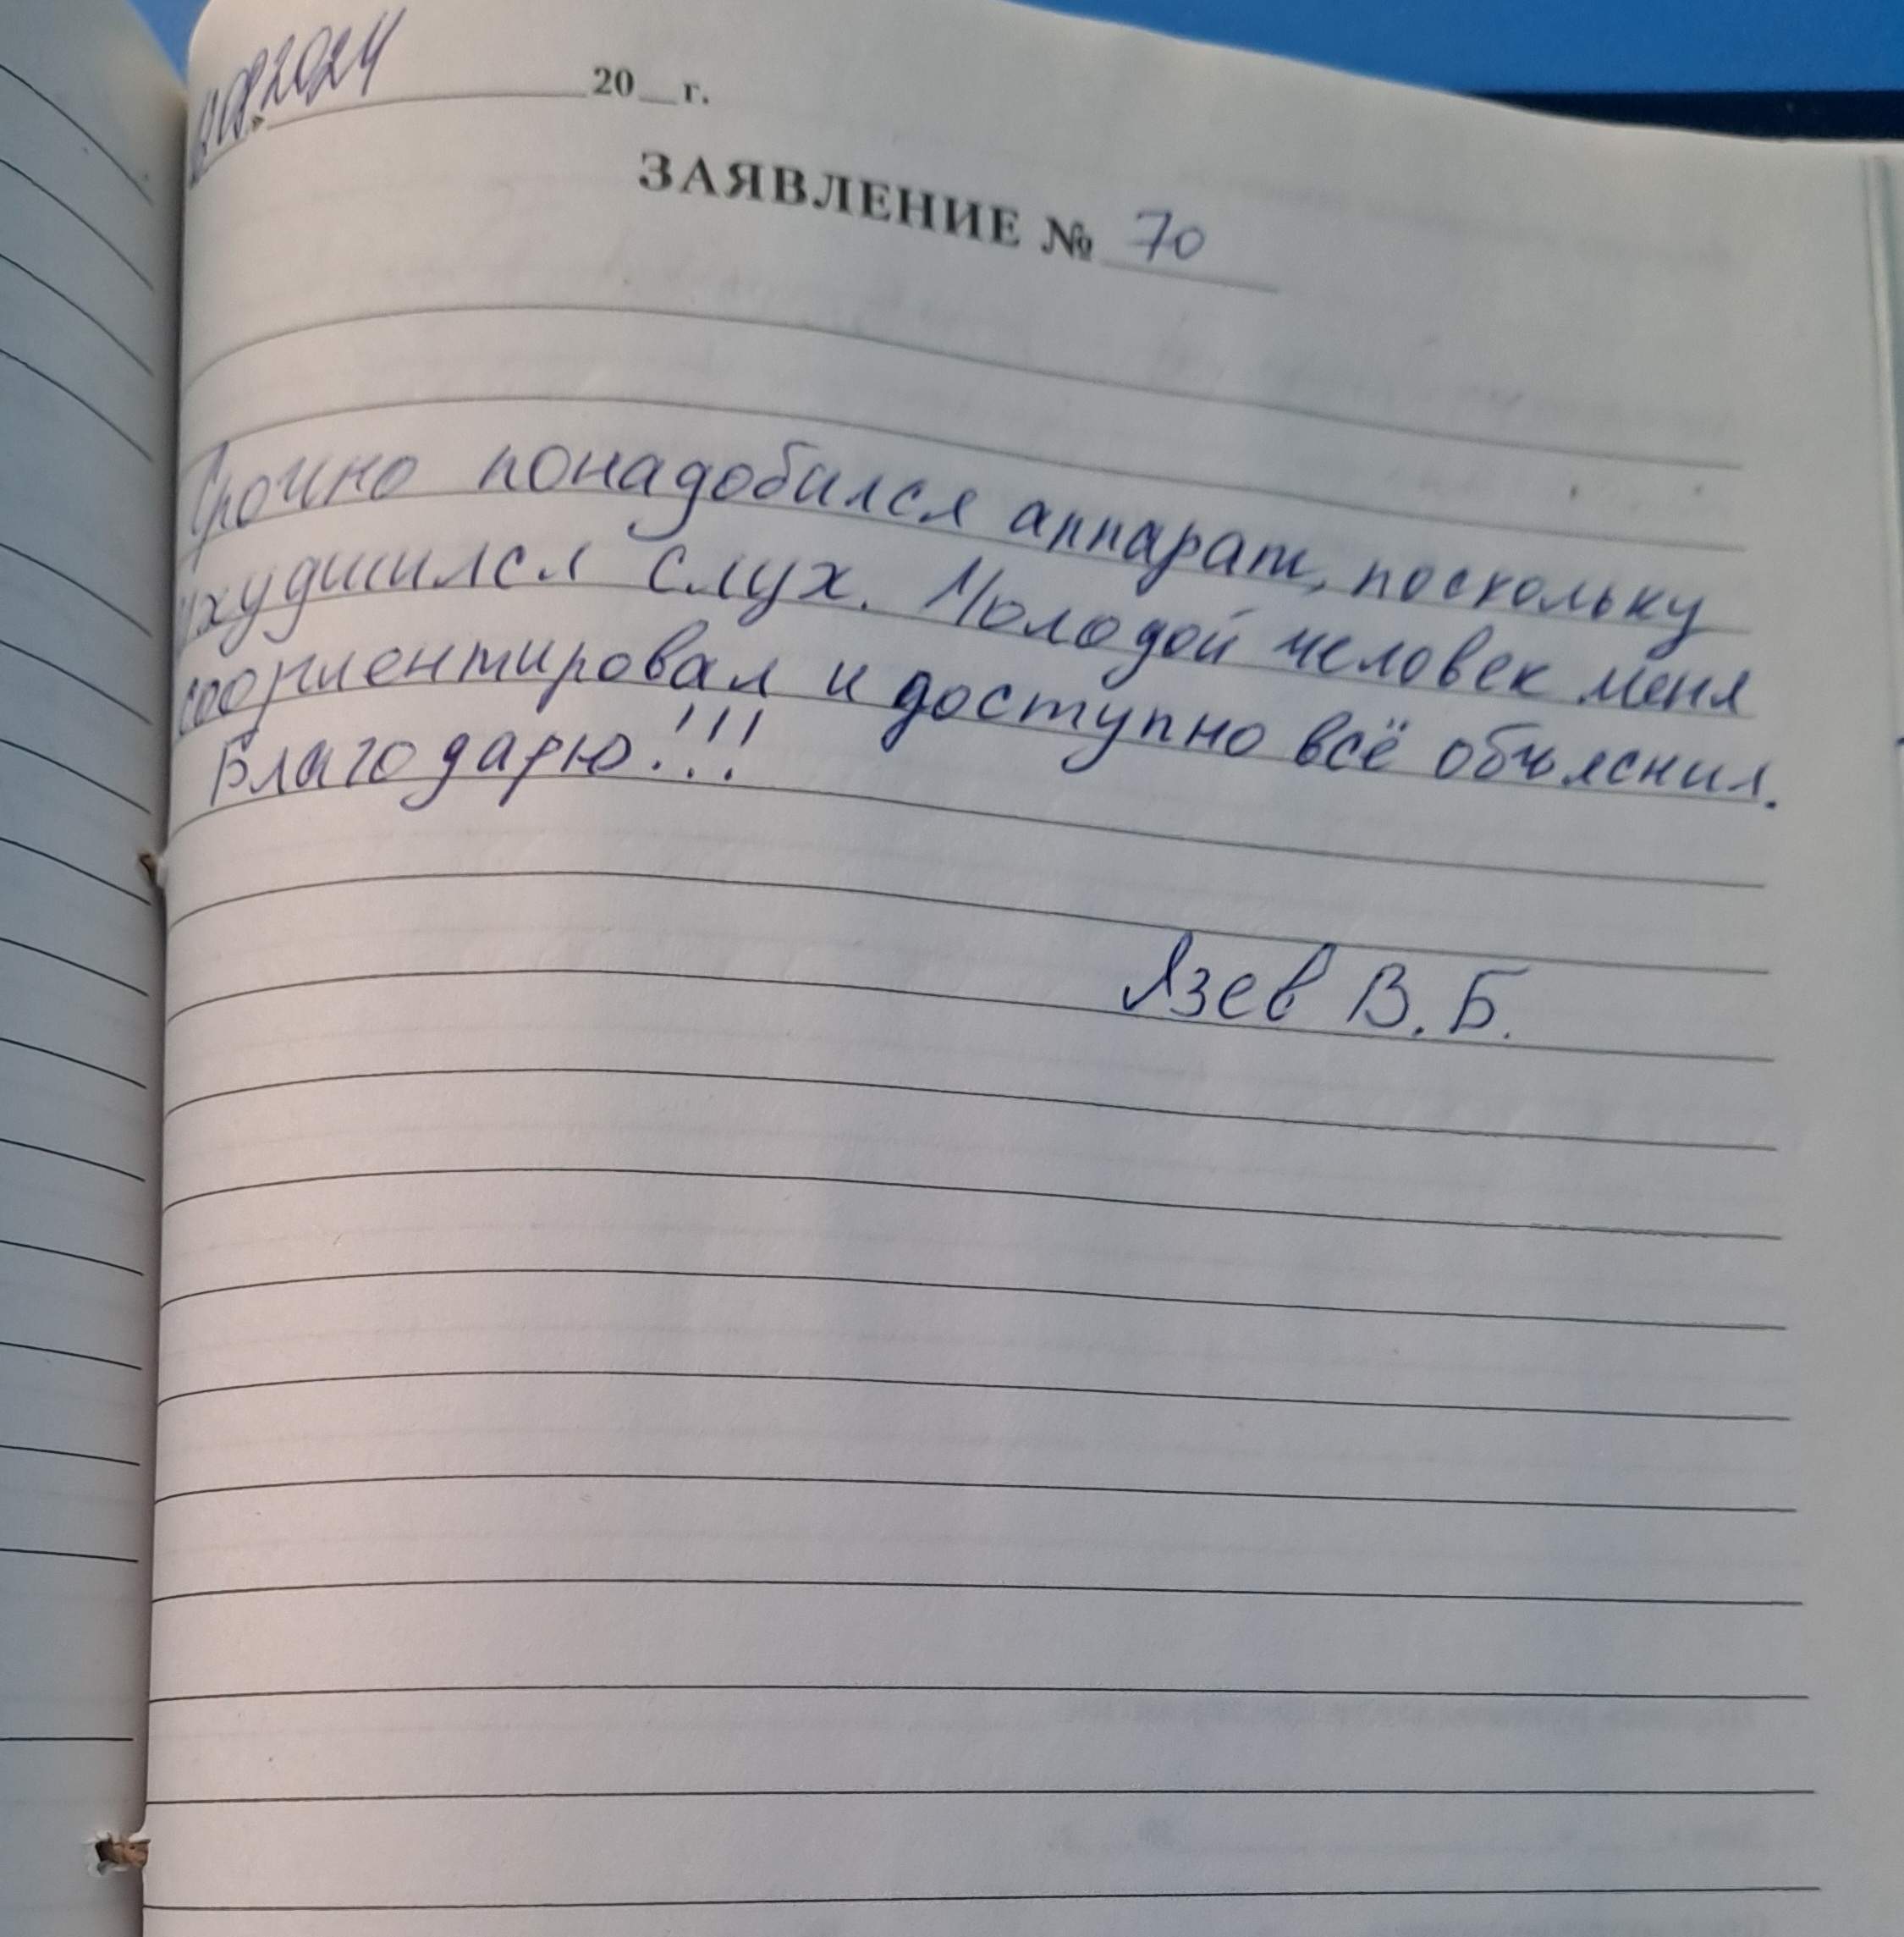 20__г.
ЗАЯВЛЕНИЕ № 70
Срочно понадобился аппарат, поскольку
ухудшился слух. Молодой человек меня
сориентировал и доступно всё объяснил.
Благодарю!!!
Язев В.Б.